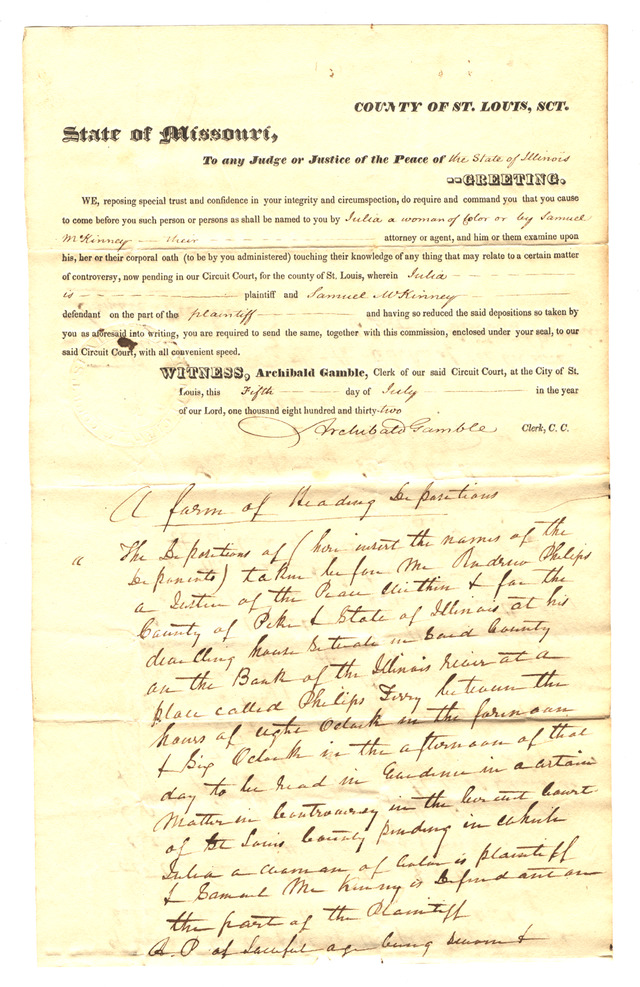 COUNTY OF ST. LOUIS, SCT.
State of Missouri,
To any Judge or Justice of the Peace of the State of Illinois
--GREETING.
WE, reposing special trust and confidence in your integrity and circumspection, do require and command you that you cause
to come before you such person or persons as shall be named to you by Julia a woman of Color or by Samuel
McKinney — their attorney or agent, and him or them examine upon
his, her or their corporal oath (to be by you administered) touching their knowledge of any thing that may relate to a certain matter
of controversy, now pending in our Circuit Court, for the county of St. Louis, wherein Julia
is plaintiff and Samuel McKinney
defendant on the part of the plaintiff and having so reduced the said depositions so taken by
you as aforesaid into writing, you are required to send the same, together with this commission, enclosed under your seal, to our
said Circuit Court, with all convenient speed.
WITNESS, Archibald Gamble, Clerk of our said Circuit Court, at the City of St.
Louis, this Fifth day of July in the year
of our Lord, one thousand eight hundred and thirty-two
Archibald Gamble Clerk, C. C.
A form of Heading Depositions
" The Depositions of (here insert the names of the
Deponents) taken before Me Andrew Philips
a Justice of the Peace Within & for the
County of Pike & State of Illinois at his
dwelling house Setuate in Said County
on the Bank of the Illinois river at a
place called Philips Ferry between the
hours of eight Oclock in the forenoon
& Six Oclock in the afternoon of that
day to be read in Evidence in a certain
Matter in Controversy in the Circuit Court
of St Louis County pending in which
Julia a woman of Color is plaintiff
& Samuel Mc Kinny is Defendant on
the part of the Plaintiff
A.P of Lawful age being sworn &